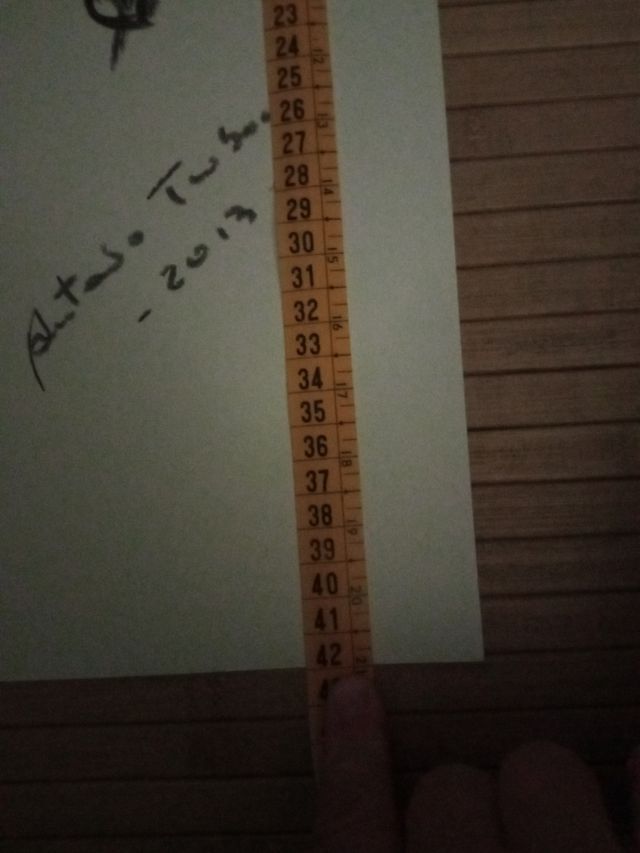 23
24
12
25
26
13
27
28
14
29
30
15
31
32
16
33
34
17
35
36
18
37
38
19
39
40
20
41
42
21
- 2013